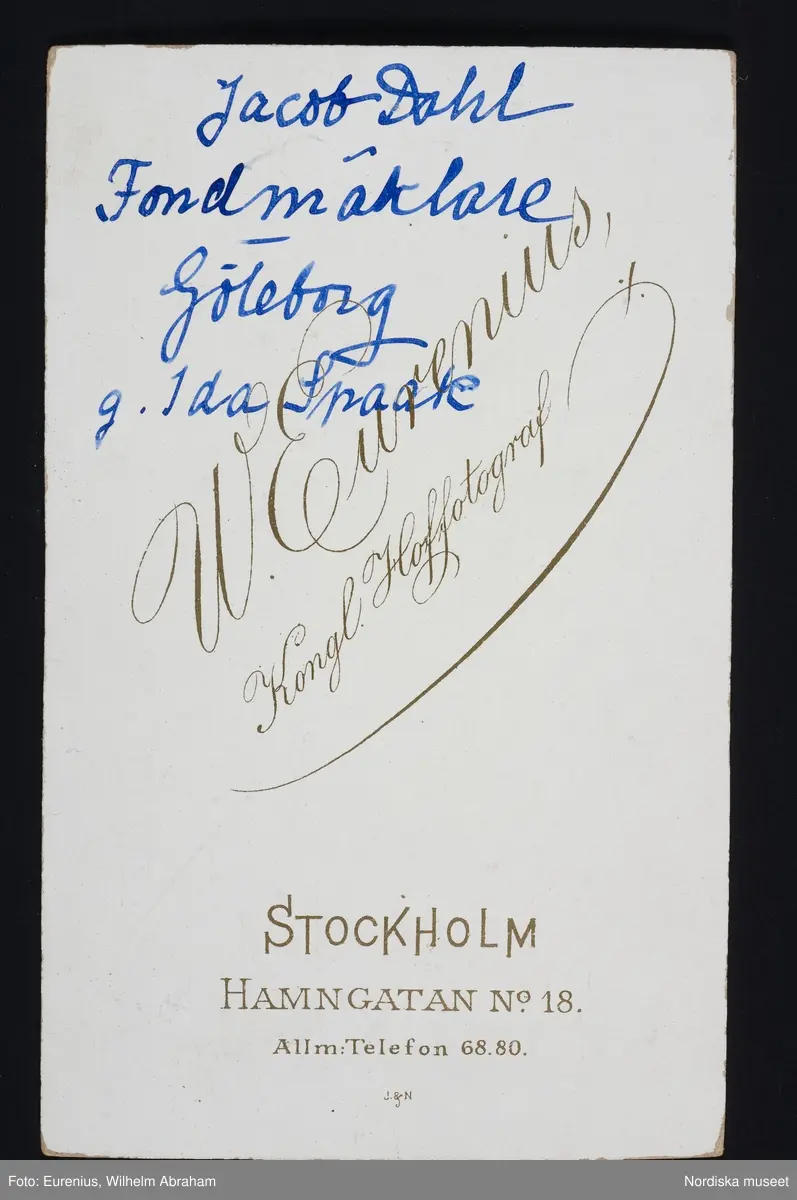 Jacob Dahl
Fondmäklare
Göteborg
g. Ida Spaak
W. Eurenius,
Kongl. Hoffotograf
STOCKHOLM
HAMNGATAN No. 18.
Allm:Telefon 68.80.
J.&N
Foto: Eurenius, Wilhelm Abraham
Nordiska museet